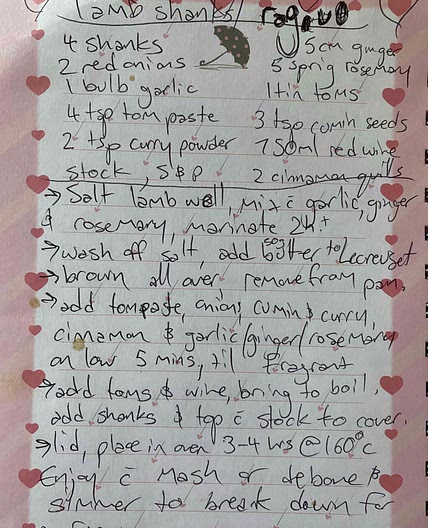 lamb shanks/ ragouo
4 shanks 5cm ginger
2 red onions 5 sprig rosemary
1 bulb garlic 1 tin toms
4 tsp tom paste 3 tsp cumin seeds
2 tsp curry powder 750ml red wine
stock, S&P 2 cinnamon quills
→ Salt lamb well, mix c̄ garlic, ginger
& rosemary, marinate 24.+
→ wash off salt, add 50g butter to Lecreuset
→ brown all over remove from pan,
→ add tompaste, onions, cumin & curry,
cinnamon & garlic/ginger/rosemary
on low 5 mins, til fragrant
→ add toms & wine, bring to boil,
add shanks & top c̄ stock to cover.
→ lid, place in oven 3-4 hrs @ 160°c
Enjoy c̄ mash or debone &
simmer to break down for